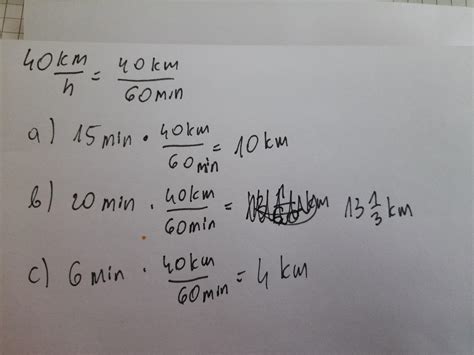 40 km/h = 40 km/60 min
a) 15 min · 40 km/60 min = 10 km
b) 20 min · 40 km/60 min = 13 1/3 km
c) 6 min · 40 km/60 min = 4 km